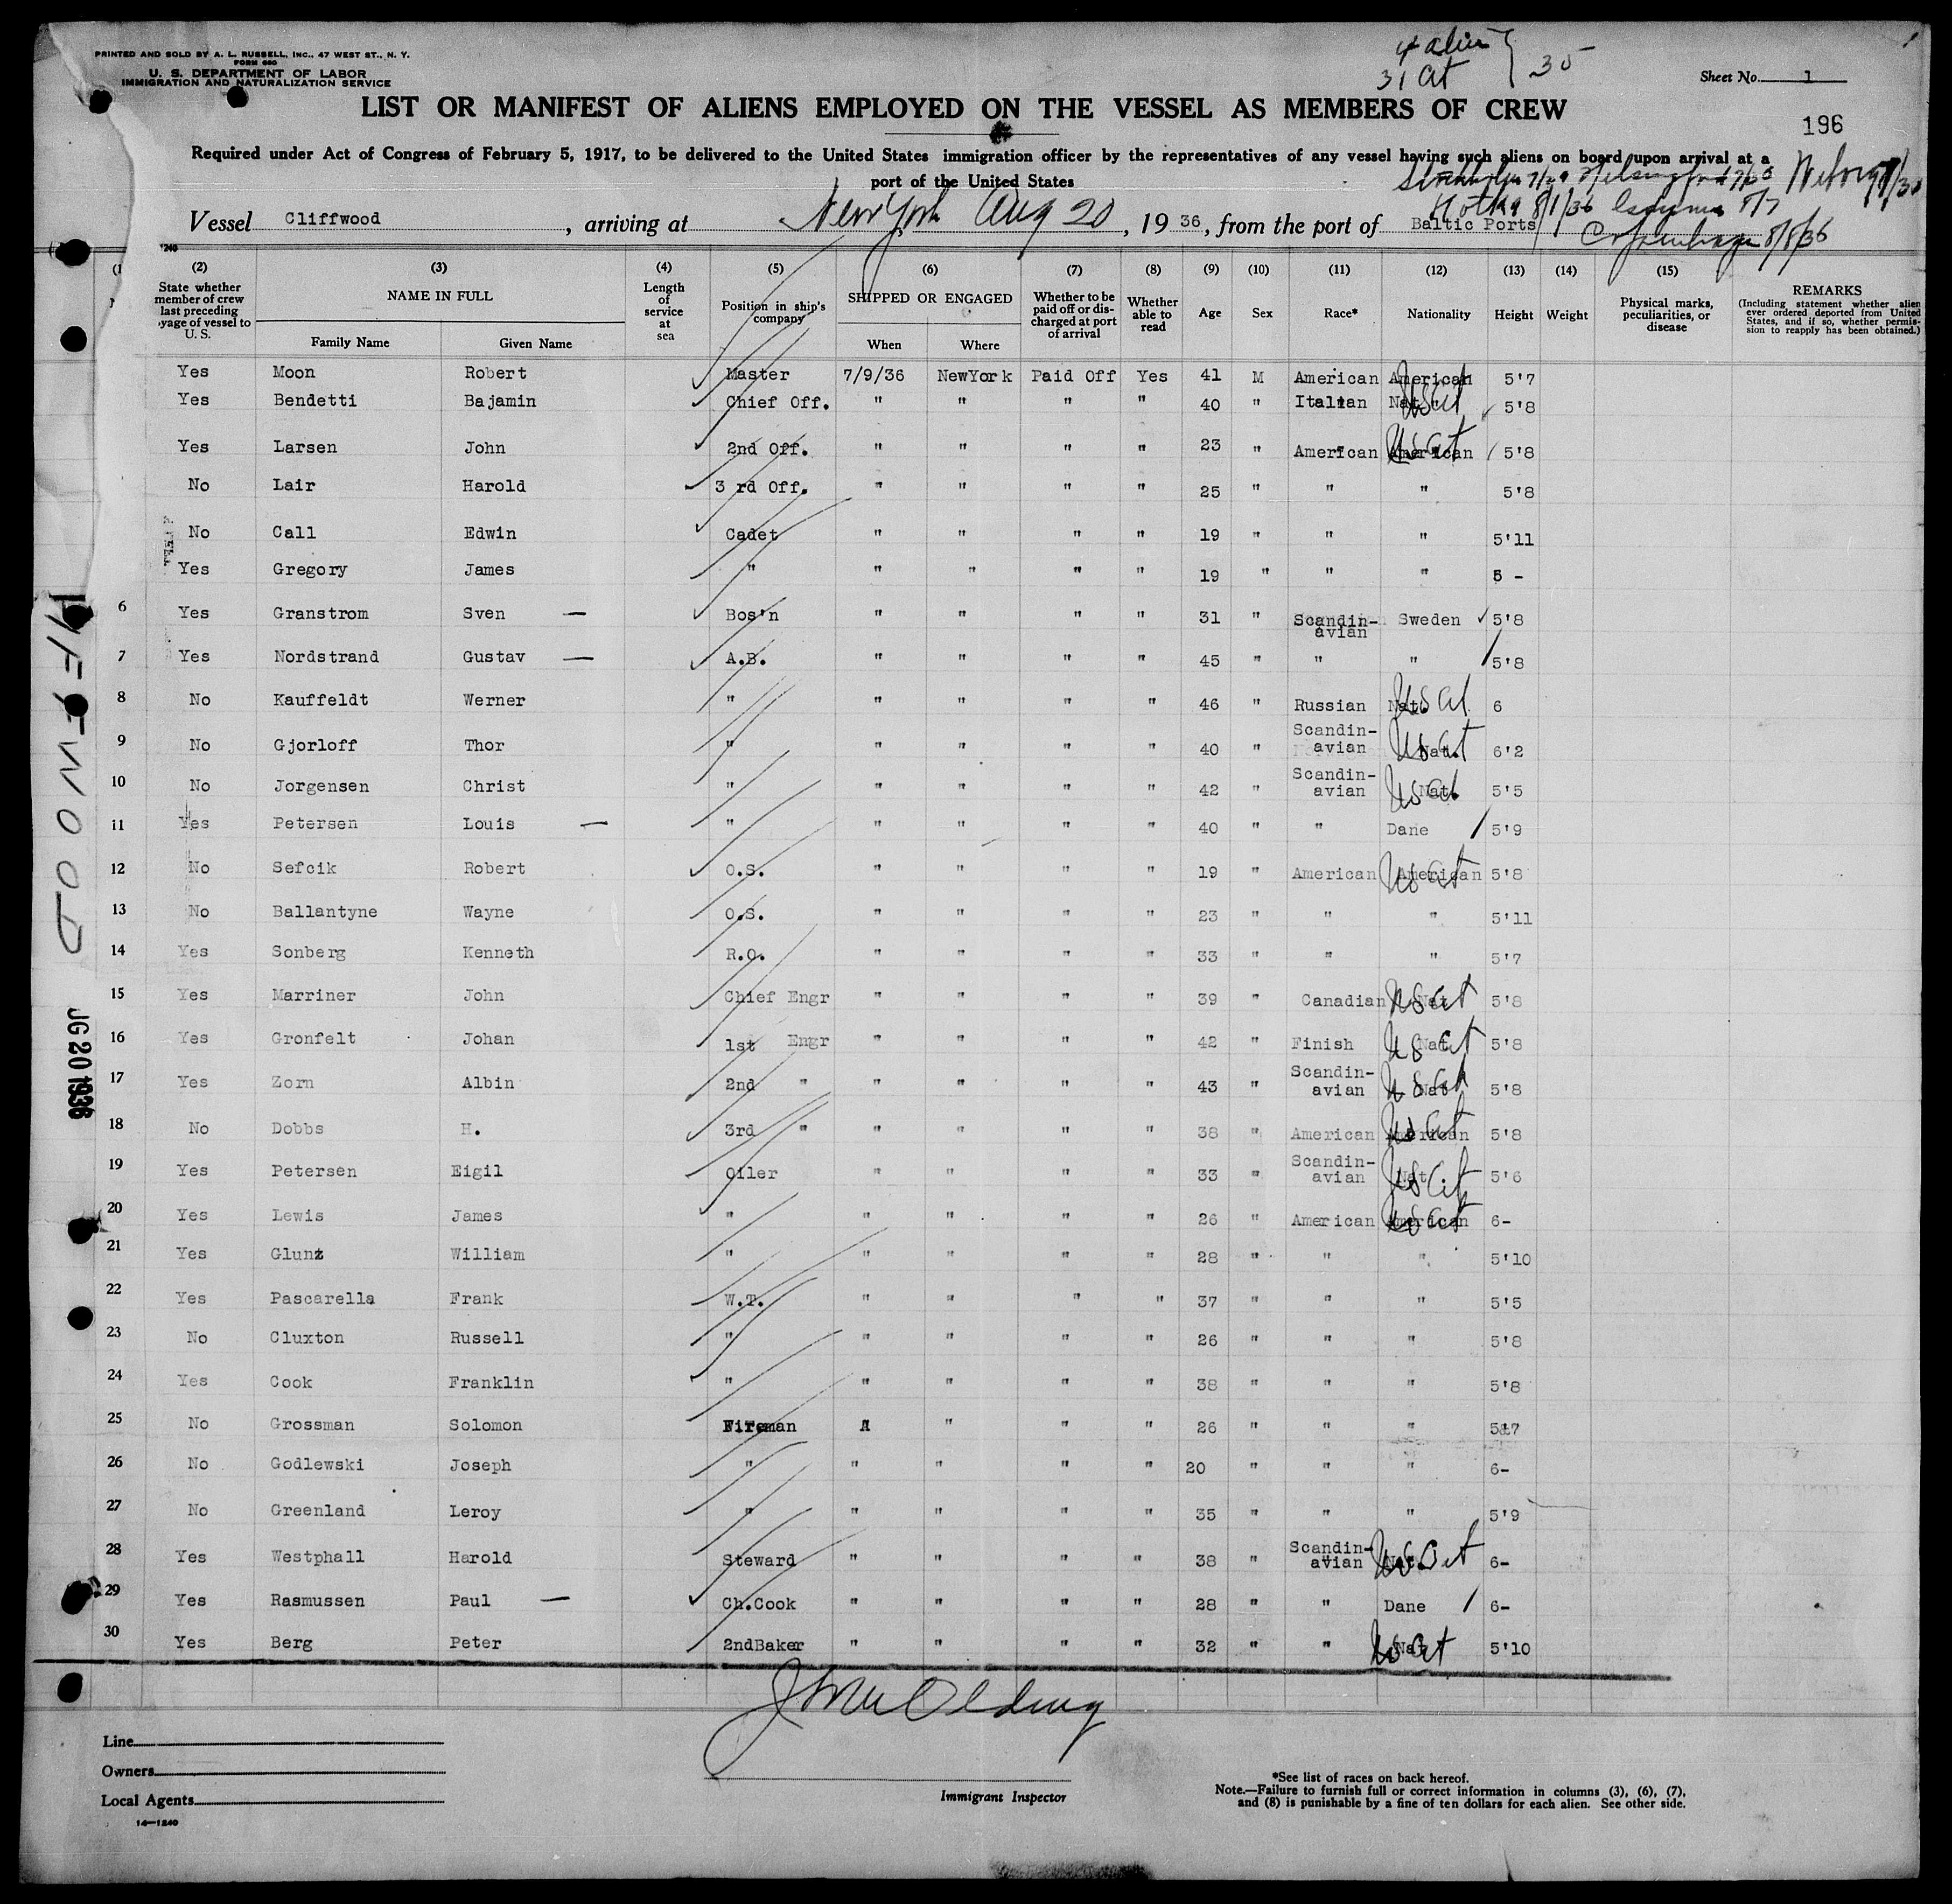 PRINTED AND SOLD BY A. L. RUSSELL, INC., 47 WEST ST., N. Y.
FORM 680
U. S. DEPARTMENT OF LABOR
IMMIGRATION AND NATURALIZATION SERVICE
4 alien
31 Cit } 35
Sheet No. 1
LIST OR MANIFEST OF ALIENS EMPLOYED ON THE VESSEL AS MEMBERS OF CREW
196
Required under Act of Congress of February 5, 1917, to be delivered to the United States immigration officer by the representatives of any vessel having such aliens on board upon arrival at a
port of the United States
Vessel Cliffwood, arriving at New York Aug 20, 1936, from the port of Baltic Ports
Kotka 8/1/36 8/7
Copenhagen 8/8/36
(2) (3) (4) (5) (6) (7) (8) (9) (10) (11) (12) (13) (14) (15)
State whether member of crew last preceding yage of vessel to U. S.
NAME IN FULL
Family Name Given Name
Length of service at sea
Position in ship's company
SHIPPED OR ENGAGED
When Where
Whether to be paid off or discharged at port of arrival
Whether able to read
Age Sex Race* Nationality Height Weight
Physical marks, peculiarities, or disease
REMARKS
(Including statement whether alien ever ordered deported from United States, and if so, whether permission to reapply has been obtained.)
Yes Moon Robert Master 7/9/36 NewYork Paid Off Yes 41 M American American 5'7
Yes Bendetti Bajamin Chief Off. " " " " 40 " Italian Nat. US Cit 5'8
Yes Larsen John 2nd Off. " " " " 23 " American American US Cit 5'8
No Lair Harold 3 rd Off. " " " " 25 " " " 5'8
No Call Edwin Cadet " " " " 19 " " " 5'11
Yes Gregory James " " " " " 19 " " " 5 -
6 Yes Granstrom Sven — Bos'n " " " " 31 " Scandin-avian Sweden 5'8
7 Yes Nordstrand Gustav — A.B. " " " " 45 " " " 5'8
8 No Kauffeldt Werner " " " " " 46 " Russian Nat. US Cit 6
9 No Gjorloff Thor " " " " " 40 " Scandin-avian Nat. US Cit 6'2
10 No Jorgensen Christ " " " " " 42 " Scandin-avian Nat. US Cit 5'5
11 Yes Petersen Louis — " " " " " 40 " " Dane 5'9
12 No Sefcik Robert O.S. " " " " 19 " American American US Cit 5'8
13 No Ballantyne Wayne O.S. " " " " 23 " " " 5'11
14 Yes Sonberg Kenneth R.O. " " " " 33 " " " 5'7
15 Yes Marriner John Chief Engr " " " " 39 " Canadian Nat US Cit 5'8
16 Yes Gronfelt Johan 1st Engr " " " " 42 " Finish Nat US Cit 5'8
17 Yes Zorn Albin 2nd " " " " " 43 " Scandin-avian Nat US Cit 5'8
18 No Dobbs H. 3rd " " " " " 38 " American American US Cit 5'8
19 Yes Petersen Eigil Oiler " " " " 33 " Scandin-avian Nat US Cit 5'6
20 Yes Lewis James " " " " " 26 " American American US Cit 6-
21 Yes Glunz William " " " " " 28 " " " 5'10
22 Yes Pascarella Frank W.T. " " " " 37 " " " 5'5
23 No Cluxton Russell " " " " " 26 " " " 5'8
24 Yes Cook Franklin " " " " " 38 " " " 5'8
25 No Grossman Solomon Fireman " " " " 26 " " " 5'7
26 No Godlewski Joseph " " " " " 20 " " " 6-
27 No Greenland Leroy " " " " " 35 " " " 5'9
28 Yes Westphall Harold Steward " " " " 38 " Scandin-avian Nat. US Cit 6-
29 Yes Rasmussen Paul — Ch.Cook " " " " 28 " " Dane 6-
30 Yes Berg Peter 2ndBaker " " " " 32 " " Nat US Cit 5'10
Line
Owners
Local Agents
14—1240
Immigrant Inspector
*See list of races on back hereof.
Note.—Failure to furnish full or correct information in columns (3), (6), (7),
and (8) is punishable by a fine of ten dollars for each alien. See other side.